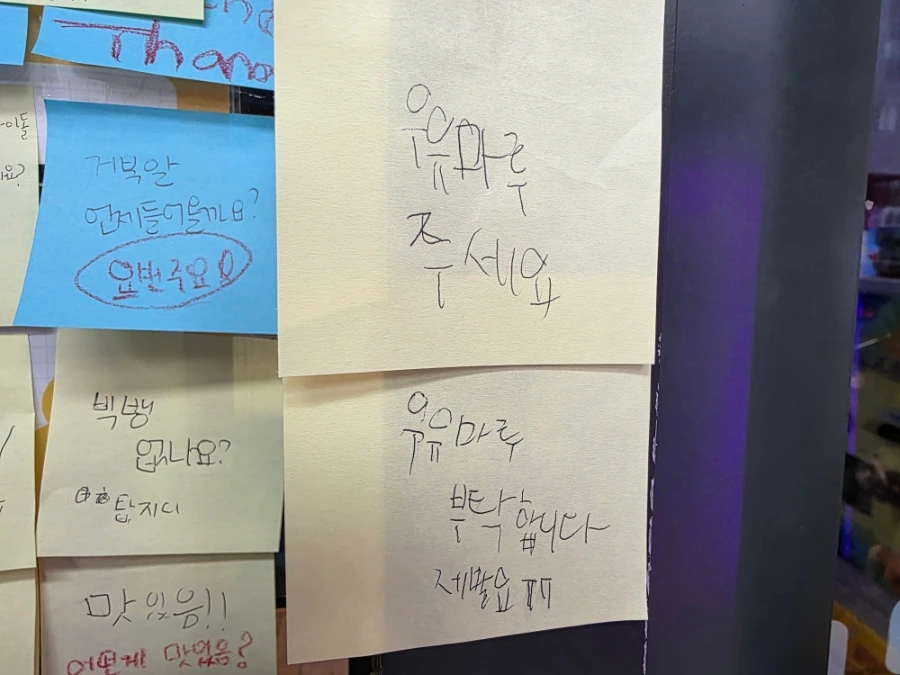 Than
거북알
언제들어올까요?
요번주요!
빅뱅
없나요?
탑지디
맛있음!!
어떻게 맛없음?
우유마루
주세요
우유마루
부탁합니다
제발요 ㅠㅠ